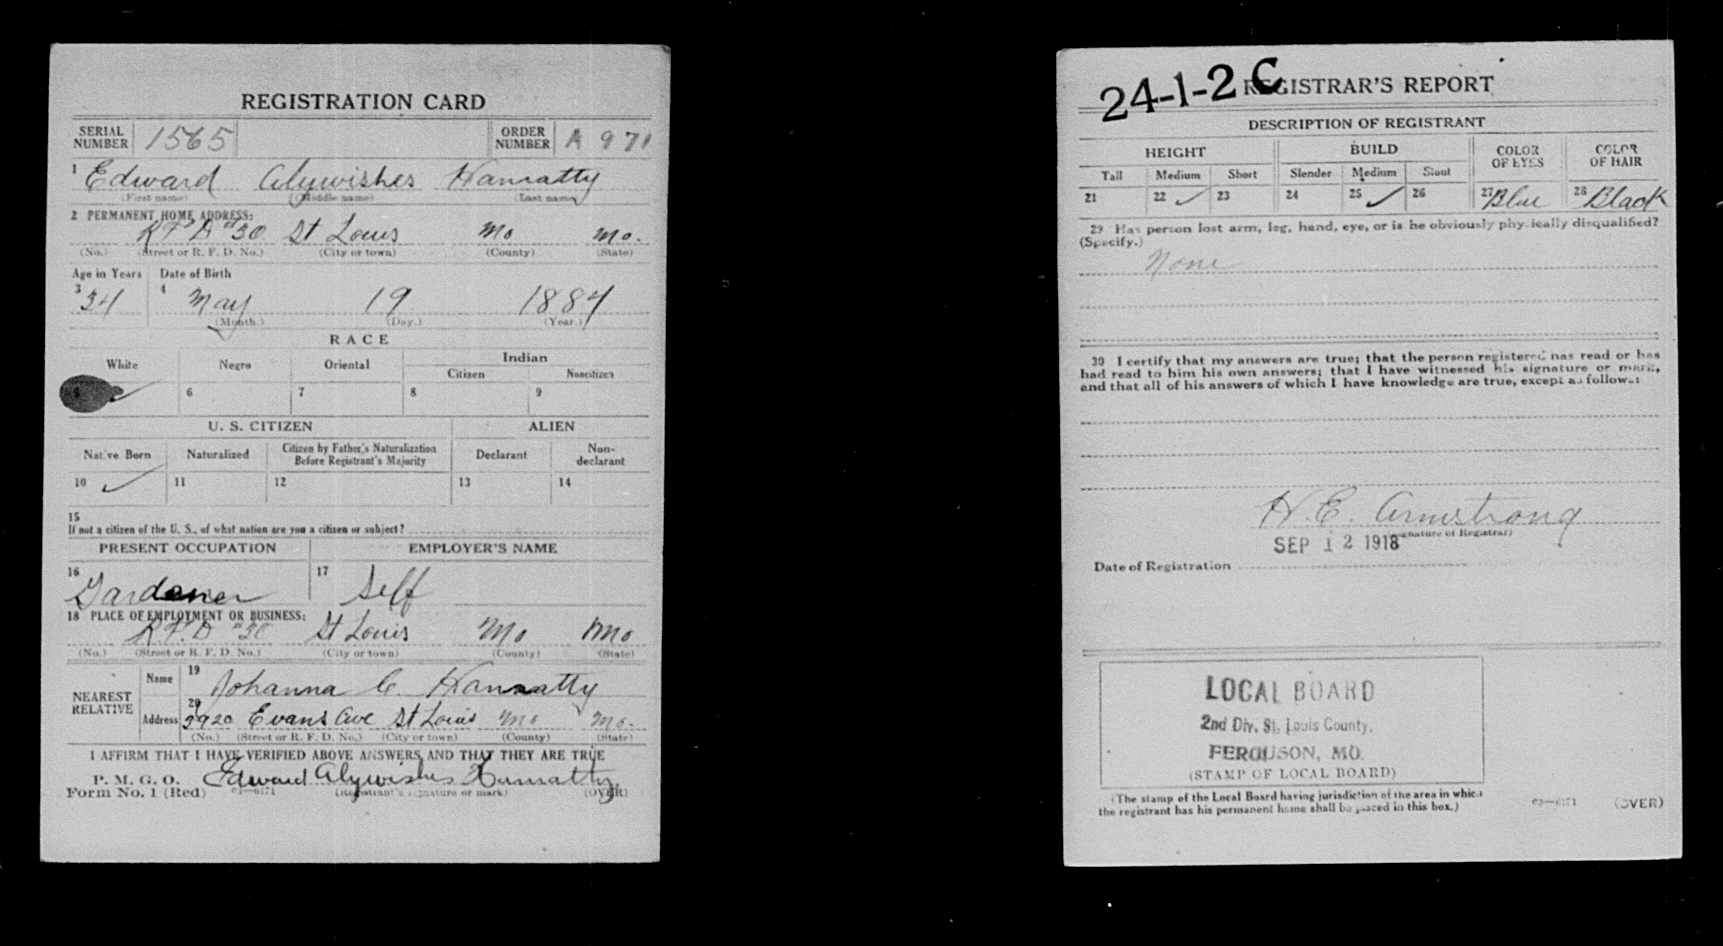 REGISTRATION CARD
SERIAL NUMBER 1565 ORDER NUMBER A 971
1 Edward Alywishes Hanratty
(First name) (Middle name) (Last name)
2 PERMANENT HOME ADDRESS:
R F D #30 St Louis Mo Mo.
(No.) (Street or R. F. D. No.) (City or town) (County) (State)
Age in Years Date of Birth
3 34 4 May 19 1884
(Month.) (Day.) (Year.)
RACE
White Negro Oriental Indian
Citizen Noncitizen
5 ✓ 6 7 8 9
U. S. CITIZEN ALIEN
Native Born Naturalized Citizen by Father's Naturalization Before Registrant's Majority Declarant Non-declarant
10 ✓ 11 12 13 14
15
If not a citizen of the U. S., of what nation are you a citizen or subject?
PRESENT OCCUPATION EMPLOYER'S NAME
16 Gardener 17 Self
18 PLACE OF EMPLOYMENT OR BUSINESS:
R. F. D #30 St Louis Mo Mo
(No.) (Street or R. F. D. No.) (City or town) (County) (State)
NEAREST RELATIVE
Name 19 Johanna C. Hanratty
Address 20 3920 Evans Ave St Louis Mo Mo.
(No.) (Street or R. F. D. No.) (City or town) (County) (State)
I AFFIRM THAT I HAVE VERIFIED ABOVE ANSWERS AND THAT THEY ARE TRUE
P. M. G. O.
Form No. 1 (Red) 03—6171 Edward Alywishes Hanratty
(Registrant's signature or mark) (OVER)
24-1-2 C REGISTRAR'S REPORT
DESCRIPTION OF REGISTRANT
HEIGHT BUILD COLOR OF EYES COLOR OF HAIR
Tall Medium Short Slender Medium Stout
21 22 ✓ 23 24 25 ✓ 26 27 Blue 28 Black
29 Has person lost arm, leg, hand, eye, or is he obviously physically disqualified?
(Specify.)
None
30 I certify that my answers are true; that the person registered has read or has
had read to him his own answers; that I have witnessed his signature or mark,
and that all of his answers of which I have knowledge are true, except as follows:
H. E. Armstrong
(Signature of Registrar)
SEP 12 1918
Date of Registration
LOCAL BOARD
2nd Div. St. Louis County,
FERGUSON, MO.
(STAMP OF LOCAL BOARD)
(The stamp of the Local Board having jurisdiction of the area in which
the registrant has his permanent home shall be placed in this box.)
03—6171 (OVER)